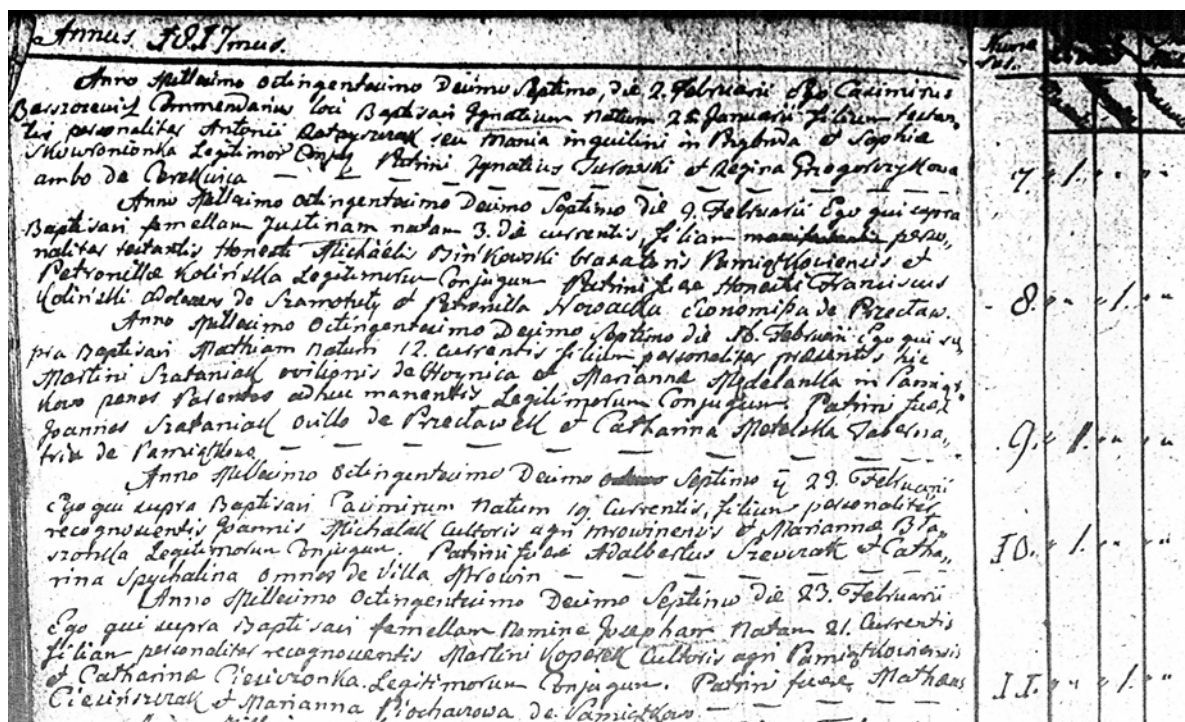 Annus 1817mus.
Anno Millesimo octingentesimo Decimo Septimo, die 2. Februarii Ego Casimirus
Commendarius loci Baptisavi Ignatium natum 28 Januarii filium testan,
tis personaliter Antonii Ratayszczak seu Mania inquilini in et Sophiae
Skowronionka Legitimor Conjug Patrini Ignatius Turowski et Regina Grzegorzykowa
ambo de Cerekwica
7. 1.
Anno Millesimo octingentesimo Decimo Septimo die 9. Februarii Ego qui supra
Baptisavi femellam Justinam natam 3. die currentis, filiam perso,
naliter testantis Honesti Michaelis Bińkowski braxatoris Pamiątkoviensis et
Petronillae Kolińska Legitimorum Conjugum Patrini fuere Honesti Franciscus
Koliński adolescens de Szamotuly et Petronilla Nowacka de Przecław.
8. 1.
Anno Millesimo octingentesimo Decimo Septimo die 16. Februarii Ego qui su,
pra Baptisavi Mathiam natum 12. currentis filium personaliter praesentis hic
Martini Szataniak ovilionis de et Marianna in Pamiąt,
kowo penes Parentes adhuc manentis Legitimorum Conjugum. Patrini fuere
Joannes Szataniak ovilio de Przecławek et Catharina Taberna,
trix de Pamiątkowo
9. 1.
Anno Millesimo octingentesimo Decimo Septimo 23. Februarii
Ego qui supra Baptisavi Casimirum natum 19 Currentis, filium personaliter
recognoventis Joannis Michalak Cultoris agri mrowinensis et Marianna Bła,
szonka Legitimorum Conjugum. Patrini fuere Adalbertus Szewczak et Catha,
rina Spychalina omnes de Villa Mrowin
10. 1.
Anno Millesimo octingentesimo Decimo Septimo Die 23. Februarii
Ego qui supra Baptisavi femellam nomine Josepham natam 21. Currentis
filiam personaliter recognoventis Martini Koperek Cultoris agri Pamiątkoviensis
et Catharina Legitimorum Conjugum. Patrini fuere Mathaeus
et Marianna Piocharowa de Pamiątkowo
11. 1.